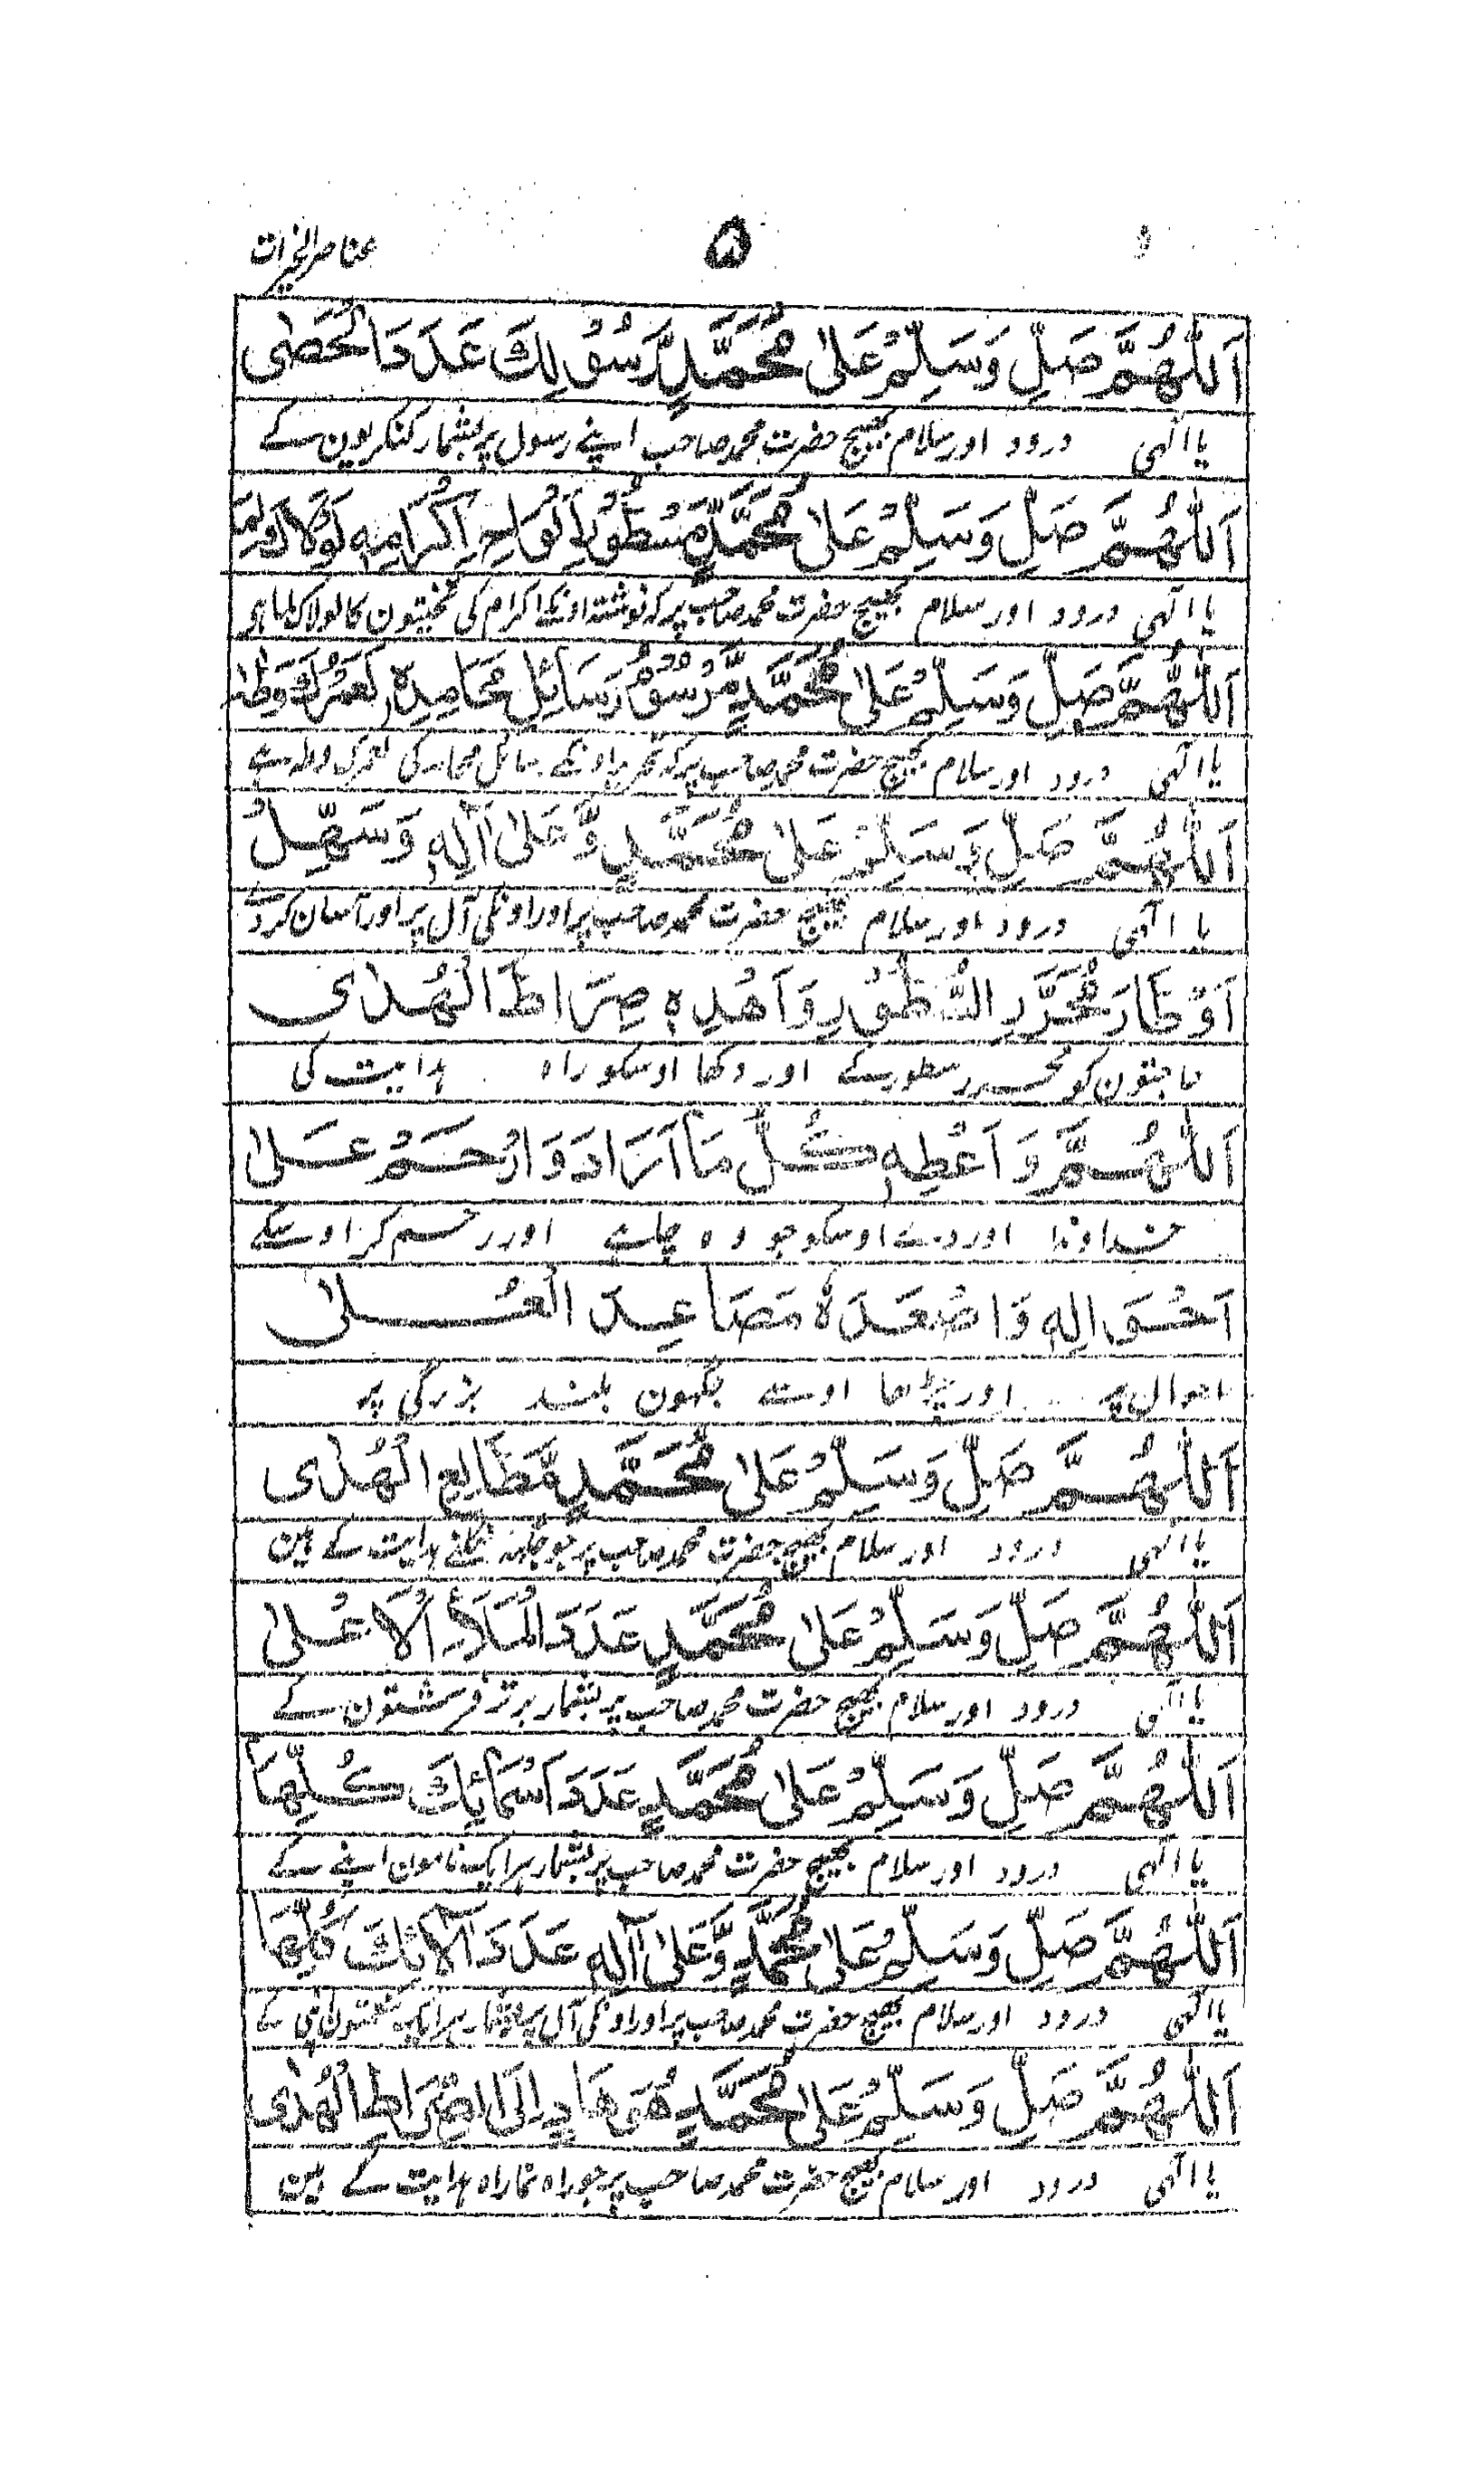 عناصر الخیرات
۵
اَللّٰهُمَّ صَلِّ وَسَلِّمْ عَلٰی مُحَمَّدٍ رَّسُوْلِكَ عَدَدَ الْحَصٰی
یا الٰہی درود اور سلام بھیج حضرت محمد صاحب اپنے رسول پر بشمار کنکریون کے
اَللّٰهُمَّ صَلِّ وَسَلِّمْ عَلٰی مُحَمَّدٍ مَّسْطُوْرُ اَلْوَاحِ اِكْرَامِهٖ لَوْلَاكَ
یا الٰہی درود اور سلام بھیج حضرت محمد صاحب پر کہ نوشتہ اونکے اکرام کی تختیون کا لولاک لما ہی
اَللّٰهُمَّ صَلِّ وَسَلِّمْ عَلٰی مُحَمَّدٍ مَّرْسُوْمُ رَسَائِلِ مَحَامِدِهٖ لَعَمْرُكَ وَطٰهٰ
یا الٰہی درود اور سلام بھیج حضرت محمد صاحب پر کہ اونکے رسائل محامد کی لعمرک وطہ ہے
اَللّٰهُمَّ صَلِّ وَسَلِّمْ عَلٰی مُحَمَّدٍ وَّعَلٰی اٰلِهٖ وَسَهِّلْ
یا الٰہی درود اور سلام بھیج حضرت محمد صاحب پر اور اونکی آل پر اور آسان کر دے
اَوْطَارَ مُحَرِّرِ السُّطُوْرِ وَاهْدِهٖ صِرَاطَ الْهُدٰی
حاجتون کو محرر سطور کے اور دکھا اوسکو راہ ہدایت کی
اَللّٰهُمَّ وَاَعْطِهٖ كُلَّ مَا اَرَادَ وَارْحَمْ عَلٰی
خداوندا اور دے اوسکو جو وہ چاہے اور رحم کر اوسکے
اَحْوَالِهٖ وَاصْعَدْهُ مَصَاعِدَ الْعُلٰی
احوال پر اور چڑھا اوسے جگہون بلند بزرگی پر
اَللّٰهُمَّ صَلِّ وَسَلِّمْ عَلٰی مُحَمَّدٍ مَّطَالِعِ الْهُدٰی
یا الٰہی درود اور سلام بھیج حضرت محمد صاحب پر جو جائے نکلنے ہدایت کے ہین
اَللّٰهُمَّ صَلِّ وَسَلِّمْ عَلٰی مُحَمَّدٍ عَدَدَ الْمَلَاِ الْاَعْلٰی
یا الٰہی درود اور سلام بھیج حضرت محمد صاحب پر بشمار برتر فرشتون کے
اَللّٰهُمَّ صَلِّ وَسَلِّمْ عَلٰی مُحَمَّدٍ عَدَدَ اَسْمَائِكَ كُلِّهَا
یا الٰہی درود اور سلام بھیج حضرت محمد صاحب پر بشمار ہر ایک نامون اپنے کے
اَللّٰهُمَّ صَلِّ وَسَلِّمْ عَلٰی مُحَمَّدٍ وَّعَلٰی اٰلِهٖ عَدَدَ اٰلَائِكَ كُلِّهَا
یا الٰہی درود اور سلام بھیج حضرت محمد صاحب پر اور اونکی آل پر بشمار ہر ایک نعمتون کے
اَللّٰهُمَّ صَلِّ وَسَلِّمْ عَلٰی مُحَمَّدٍ هُوَ هَادٍ اِلَی الصِّرَاطِ الْهُدٰی
یا الٰہی درود اور سلام بھیج حضرت محمد صاحب پر جو راہ نما راہ ہدایت کے ہین